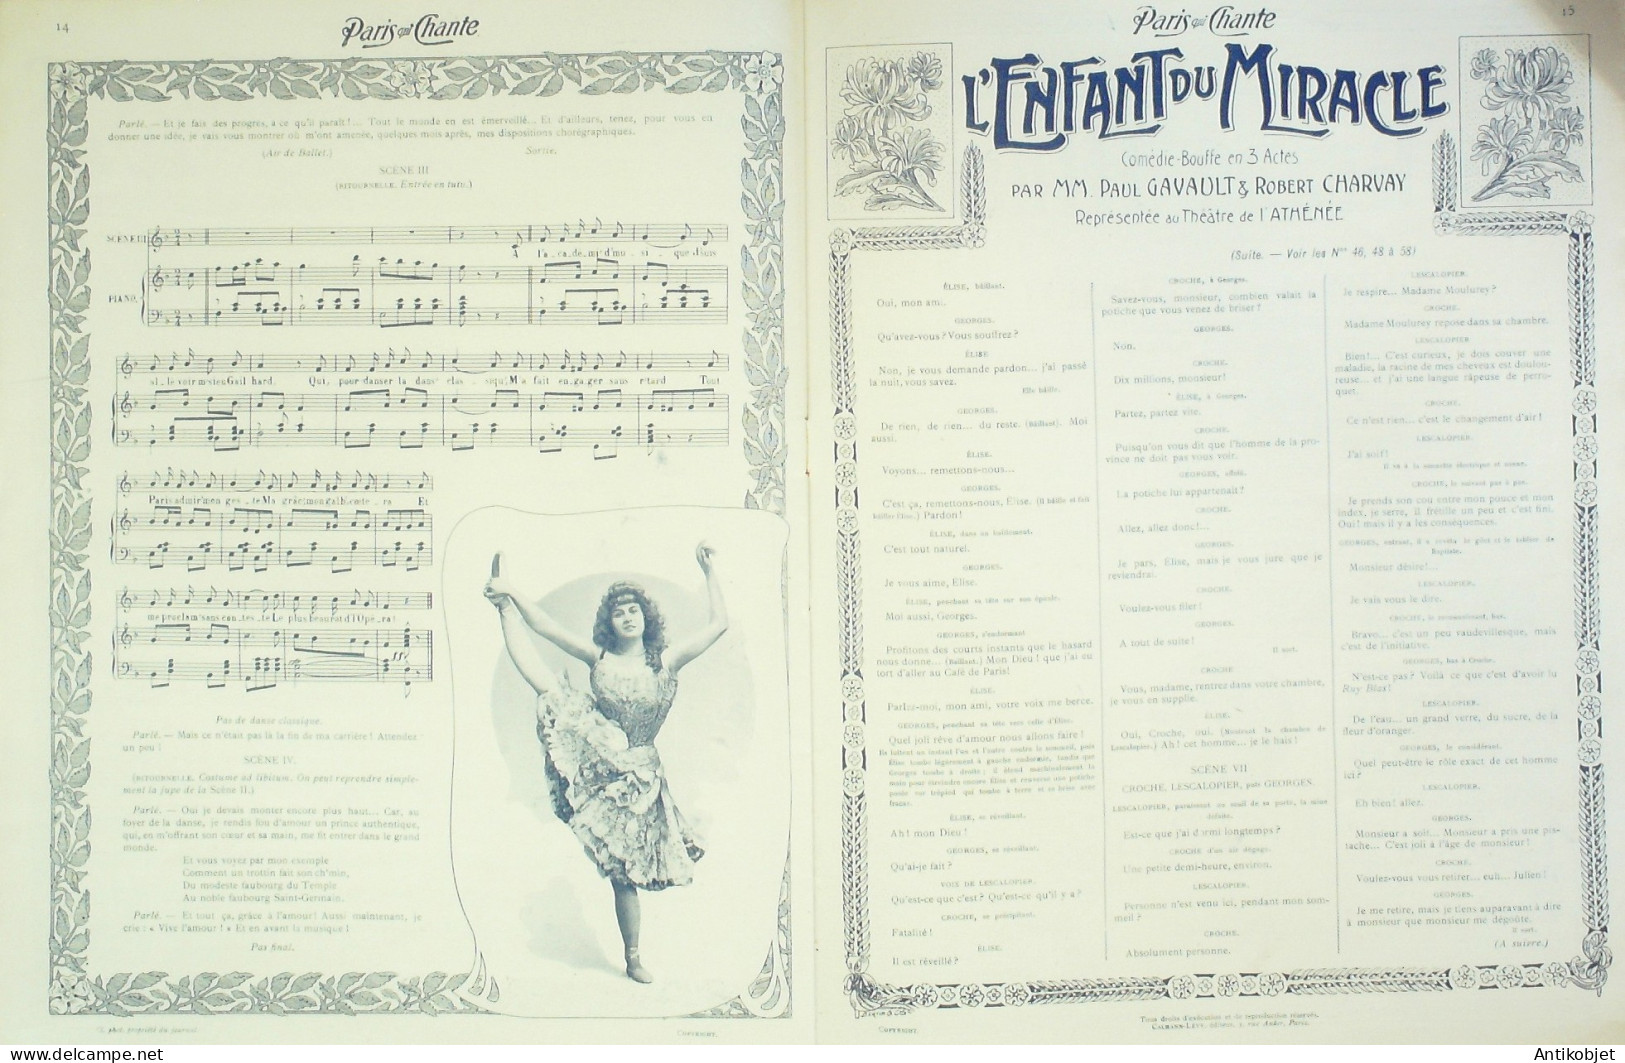 14
Paris qui Chante
Parlé. — Et je fais des progrès, à ce qu'il paraît!... Tout le monde en est émerveillé... Et d'ailleurs, tenez, pour vous en
donner une idée, je vais vous montrer où m'ont amenée, quelques mois après, mes dispositions chorégraphiques.
(Air de Ballet.) Sortie.
SCÈNE III
(RITOURNELLE. Entrée en tutu.)
SCÈNE III
A l'a_ca_de_mi'd'mu_ si_ que J'suis
PIANO.
al_lé voir m'sieu Gail hard, Qui, pour danser la dans' clas_ siqu', M'a fait en_ga_ger sans r'tard Tout
Paris admir' mon ges_te Ma grâc' mon galb' et cæ te_ra Et
me proclam' sans con_tes_te Le plus beau rat d'l'Opé_ra!
ff
Pas de danse classique.
Parlé. — Mais ce n'était pas là la fin de ma carrière! Attendez
un peu!
SCÈNE IV.
(RITOURNELLE. Costume ad libitum. On peut reprendre simple-
ment la jupe de la Scène II.)
Parlé. — Oui je devais monter encore plus haut... Car, au
foyer de la danse, je rendis fou d'amour un prince authentique,
qui, en m'offrant son cœur et sa main, me fit entrer dans le grand
monde.
Et vous voyez par mon exemple
Comment un trottin fait son ch'min,
Du modeste faubourg du Temple
Au noble faubourg Saint-Germain.
Parlé. — Et tout ça, grâce à l'amour! Aussi maintenant, je
crie : « Vive l'amour! » Et en avant la musique!
Pas final.
phot. propriété du journal.
COPYRIGHT.
Paris qui Chante
15
L'ENFANT DU MIRACLE
Comédie-Bouffe en 3 Actes
PAR MM. PAUL GAVAULT & ROBERT CHARVAY
Représentée au Théâtre de l'ATHÉNÉE
(Suite. — Voir les Nos 46, 48 à 58)
ÉLISE, bâillant.
Oui, mon ami.
GEORGES.
Qu'avez-vous? Vous souffrez?
ÉLISE
Non, je vous demande pardon... j'ai passé
la nuit, vous savez.
Elle bâille.
GEORGES.
De rien, de rien... du reste. (Bâillant). Moi
aussi.
ÉLISE.
Voyons... remettons-nous...
GEORGES.
C'est ça, remettons-nous, Élise. (Il bâille et fait
bâiller Élise.) Pardon!
ÉLISE, dans un bâillement.
C'est tout naturel.
GEORGES.
Je vous aime, Elise.
ÉLISE, penchant sa tête sur son épaule.
Moi aussi, Georges.
GEORGES, s'endormant
Profitons des courts instants que le hasard
nous donne... (Bâillant.) Mon Dieu! que j'ai eu
tort d'aller au Café de Paris!
ÉLISE.
Parlez-moi, mon ami, votre voix me berce.
GEORGES, penchant sa tête vers celle d'Élise.
Quel joli rêve d'amour nous allons faire!
Ils luttent un instant l'un et l'autre contre le sommeil, puis
Élise tombe légèrement à gauche endormie, tandis que
Georges tombe à droite; il étend machinalement la
main pour étreindre encore Élise et renverse une potiche
posée sur trépied qui tombe à terre et se brise avec
fracas.
ÉLISE, se réveillant.
Ah! mon Dieu!
GEORGES, se réveillant.
Qu'ai-je fait?
VOIX DE LESCALOPIER.
Qu'est-ce que c'est? Qu'est-ce qu'il y a?
CROCHE, se précipitant.
Fatalité!
ÉLISE.
Il est réveillé?
CROCHE, à Georges.
Savez-vous, monsieur, combien valait la
potiche que vous venez de briser?
GEORGES.
Non.
CROCHE.
Dix millions, monsieur!
ÉLISE, à Georges.
Partez, partez vite.
CROCHE.
Puisqu'on vous dit que l'homme de la pro-
vince ne doit pas vous voir.
GEORGES, affolé.
La potiche lui appartenait?
CROCHE.
Allez, allez donc!...
GEORGES.
Je pars, Élise, mais je vous jure que je
reviendrai.
CROCHE.
Voulez-vous filer!
GEORGES.
A tout de suite!
Il sort.
CROCHE
Vous, madame, rentrez dans votre chambre,
je vous en supplie.
ÉLISE.
Oui, Croche, oui. (Montrant la chambre de
Lescalopier.) Ah! cet homme... je le hais!
SCÈNE VII
CROCHE, LESCALOPIER, puis GEORGES.
LESCALOPIER, paraissant au seuil de sa porte, la mine
défaite.
Est-ce que j'ai dormi longtemps?
CROCHE d'un air dégagé.
Une petite demi-heure, environ.
LESCALOPIER.
Personne n'est venu ici, pendant mon som-
meil?
CROCHE.
Absolument personne.
LESCALOPIER.
Je respire... Madame Moulurey?
CROCHE.
Madame Moulurey repose dans sa chambre.
LESCALOPIER
Bien!... C'est curieux, je dois couver une
maladie, la racine de mes cheveux est doulou-
reuse... et j'ai une langue râpeuse de perro-
quet.
CROCHE.
Ce n'est rien... c'est le changement d'air!
LESCALOPIER.
J'ai soif!
Il va à la sonnette électrique et sonne.
CROCHE, le suivant pas à pas.
Je prends son cou entre mon pouce et mon
index, je serre, il frétille un peu et c'est fini.
Oui! mais il y a les conséquences.
GEORGES, entrant, il a revêtu le gilet et le tablier de
Baptiste.
Monsieur désire!...
LESCALOPIER.
Je vais vous le dire.
CROCHE, le reconnaissant, bas.
Bravo... c'est un peu vaudevillesque, mais
c'est de l'initiative.
GEORGES, bas à Croche.
N'est-ce pas? Voilà ce que c'est d'avoir lu
Ruy Blas!
LESCALOPIER.
De l'eau... un grand verre, du sucre, de la
fleur d'oranger.
GEORGES, le considérant.
Quel peut-être le rôle exact de cet homme
ici?
LESCALOPIER.
Eh bien! allez.
GEORGES.
Monsieur a soif... Monsieur a pris une pis-
tache... C'est joli à l'âge de monsieur!
CROCHE.
Voulez-vous vous retirer... euh... Julien!
GEORGES.
Je me retire, mais je tiens auparavant à dire
à monsieur que monsieur me dégoûte.
Il sort.
(A suivre.)
COPYRIGHT.
Tous droits d'exécution et de reproduction réservés.
CALMANN-LÉVY, éditeur, 3, rue Auber, Paris.
Antikobjet